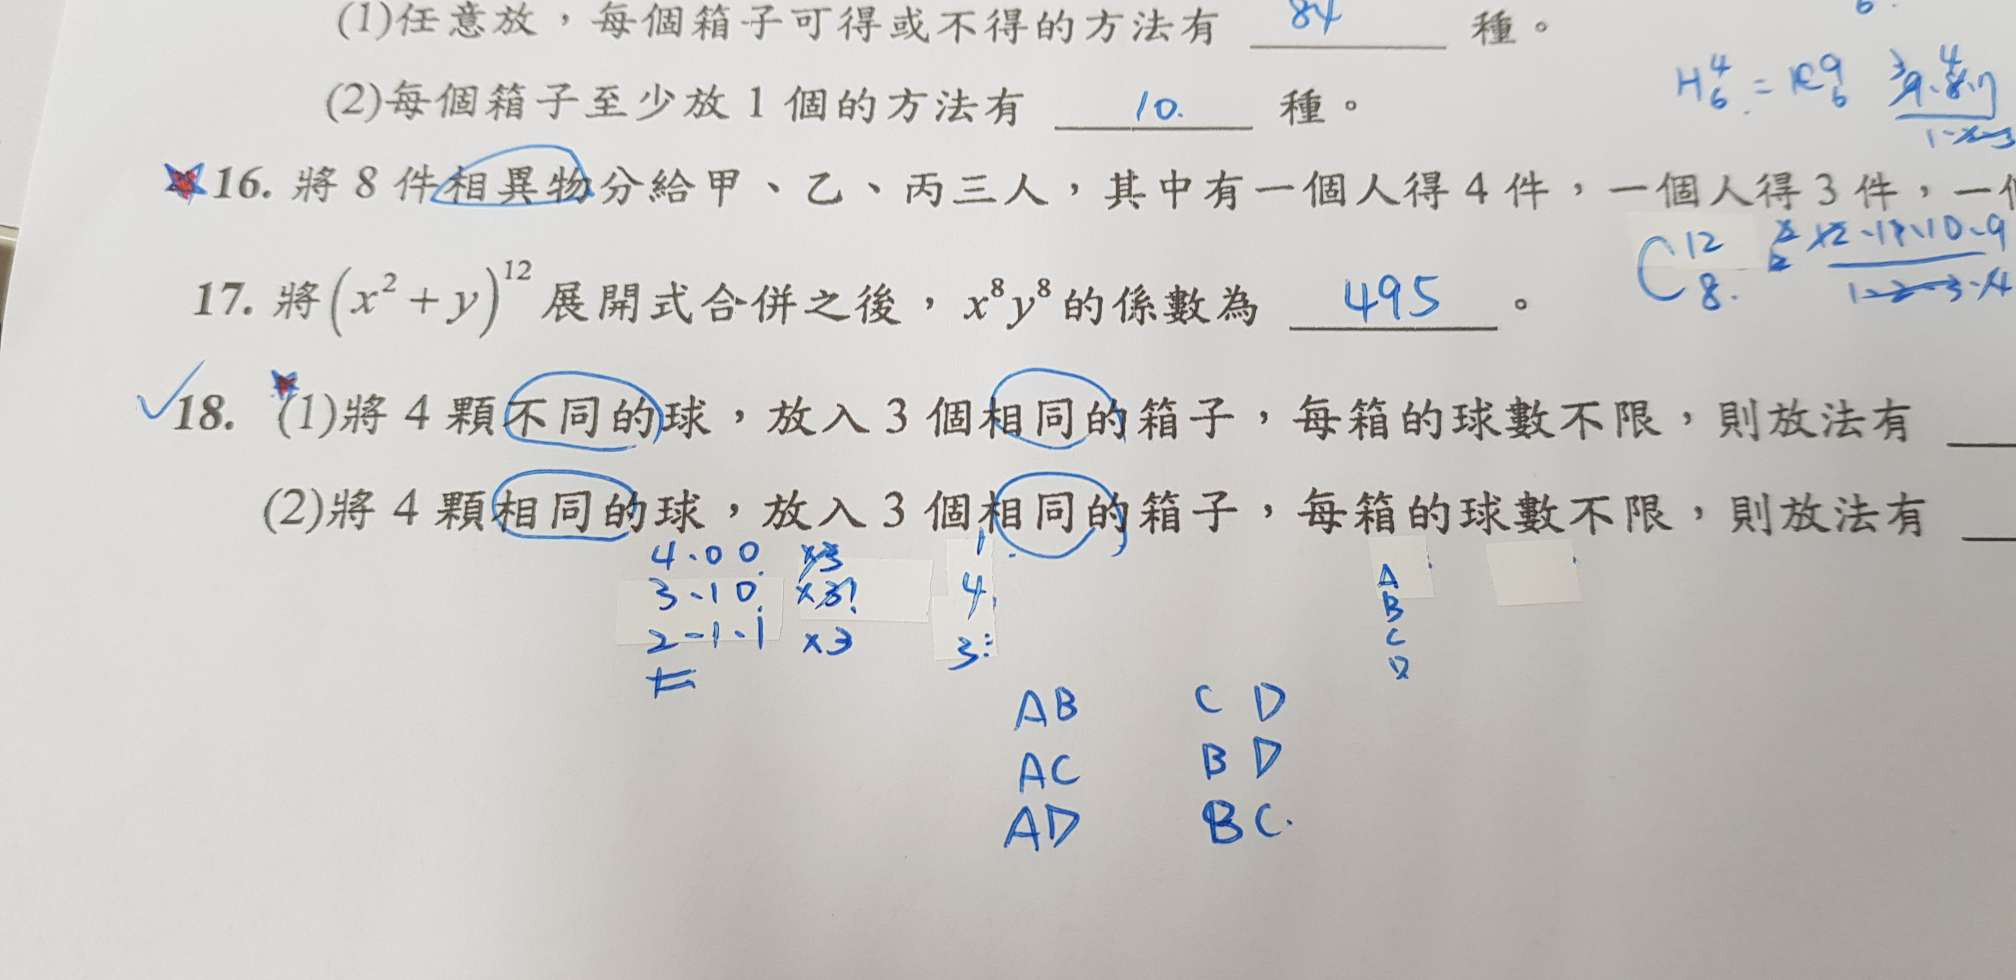 (1)任意放，每個箱子可得或不得的方法有 84 種。
(2)每個箱子至少放 1 個的方法有 10. 種。
H⁴₆ = C⁹₆ 9.8.7
1-2-3
16. 將 8 件相異物分給甲、乙、丙三人，其中有一個人得 4 件，一個人得 3 件，一
17. 將(x²+y)¹² 展開式合併之後，x⁸y⁸的係數為 495 。
C¹²₈. 12.11.10.9
1-2-3-4
18. (1)將 4 顆不同的球，放入 3 個相同的箱子，每箱的球數不限，則放法有
(2)將 4 顆相同的球，放入 3 個相同的箱子，每箱的球數不限，則放法有
4.00 ×3 1
3-10 ×3! 4
2-1-1 ×3 3
A
B
C
D
AB CD
AC BD
AD BC.